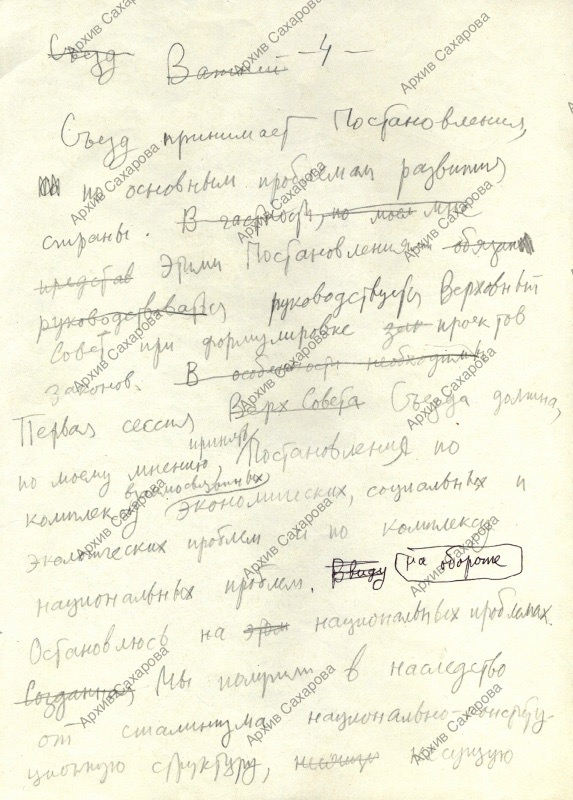 Съезд Важней - 4 -
Съезд принимает Постановления,
по основным проблемам развития
страны. В частности, по моему мне
представ Этими Постановлениями обязан
руководствоваться руководствуется Верховный
Совет при формулировке зак проектов
законов. В особенности необходимы
Первая сессия Верх Совета Съезда должна,
по моему мнению, принять Постановления по
комплексу взаимосвязанных экономических, социальных и
экологических проблем и по комплексу
национальных проблем. Ввиду на обороте
Остановлюсь на этом национальных проблемах.
Созданная Мы получили в наследство
от сталинизма национально-конститу-
ционную структуру, несущую